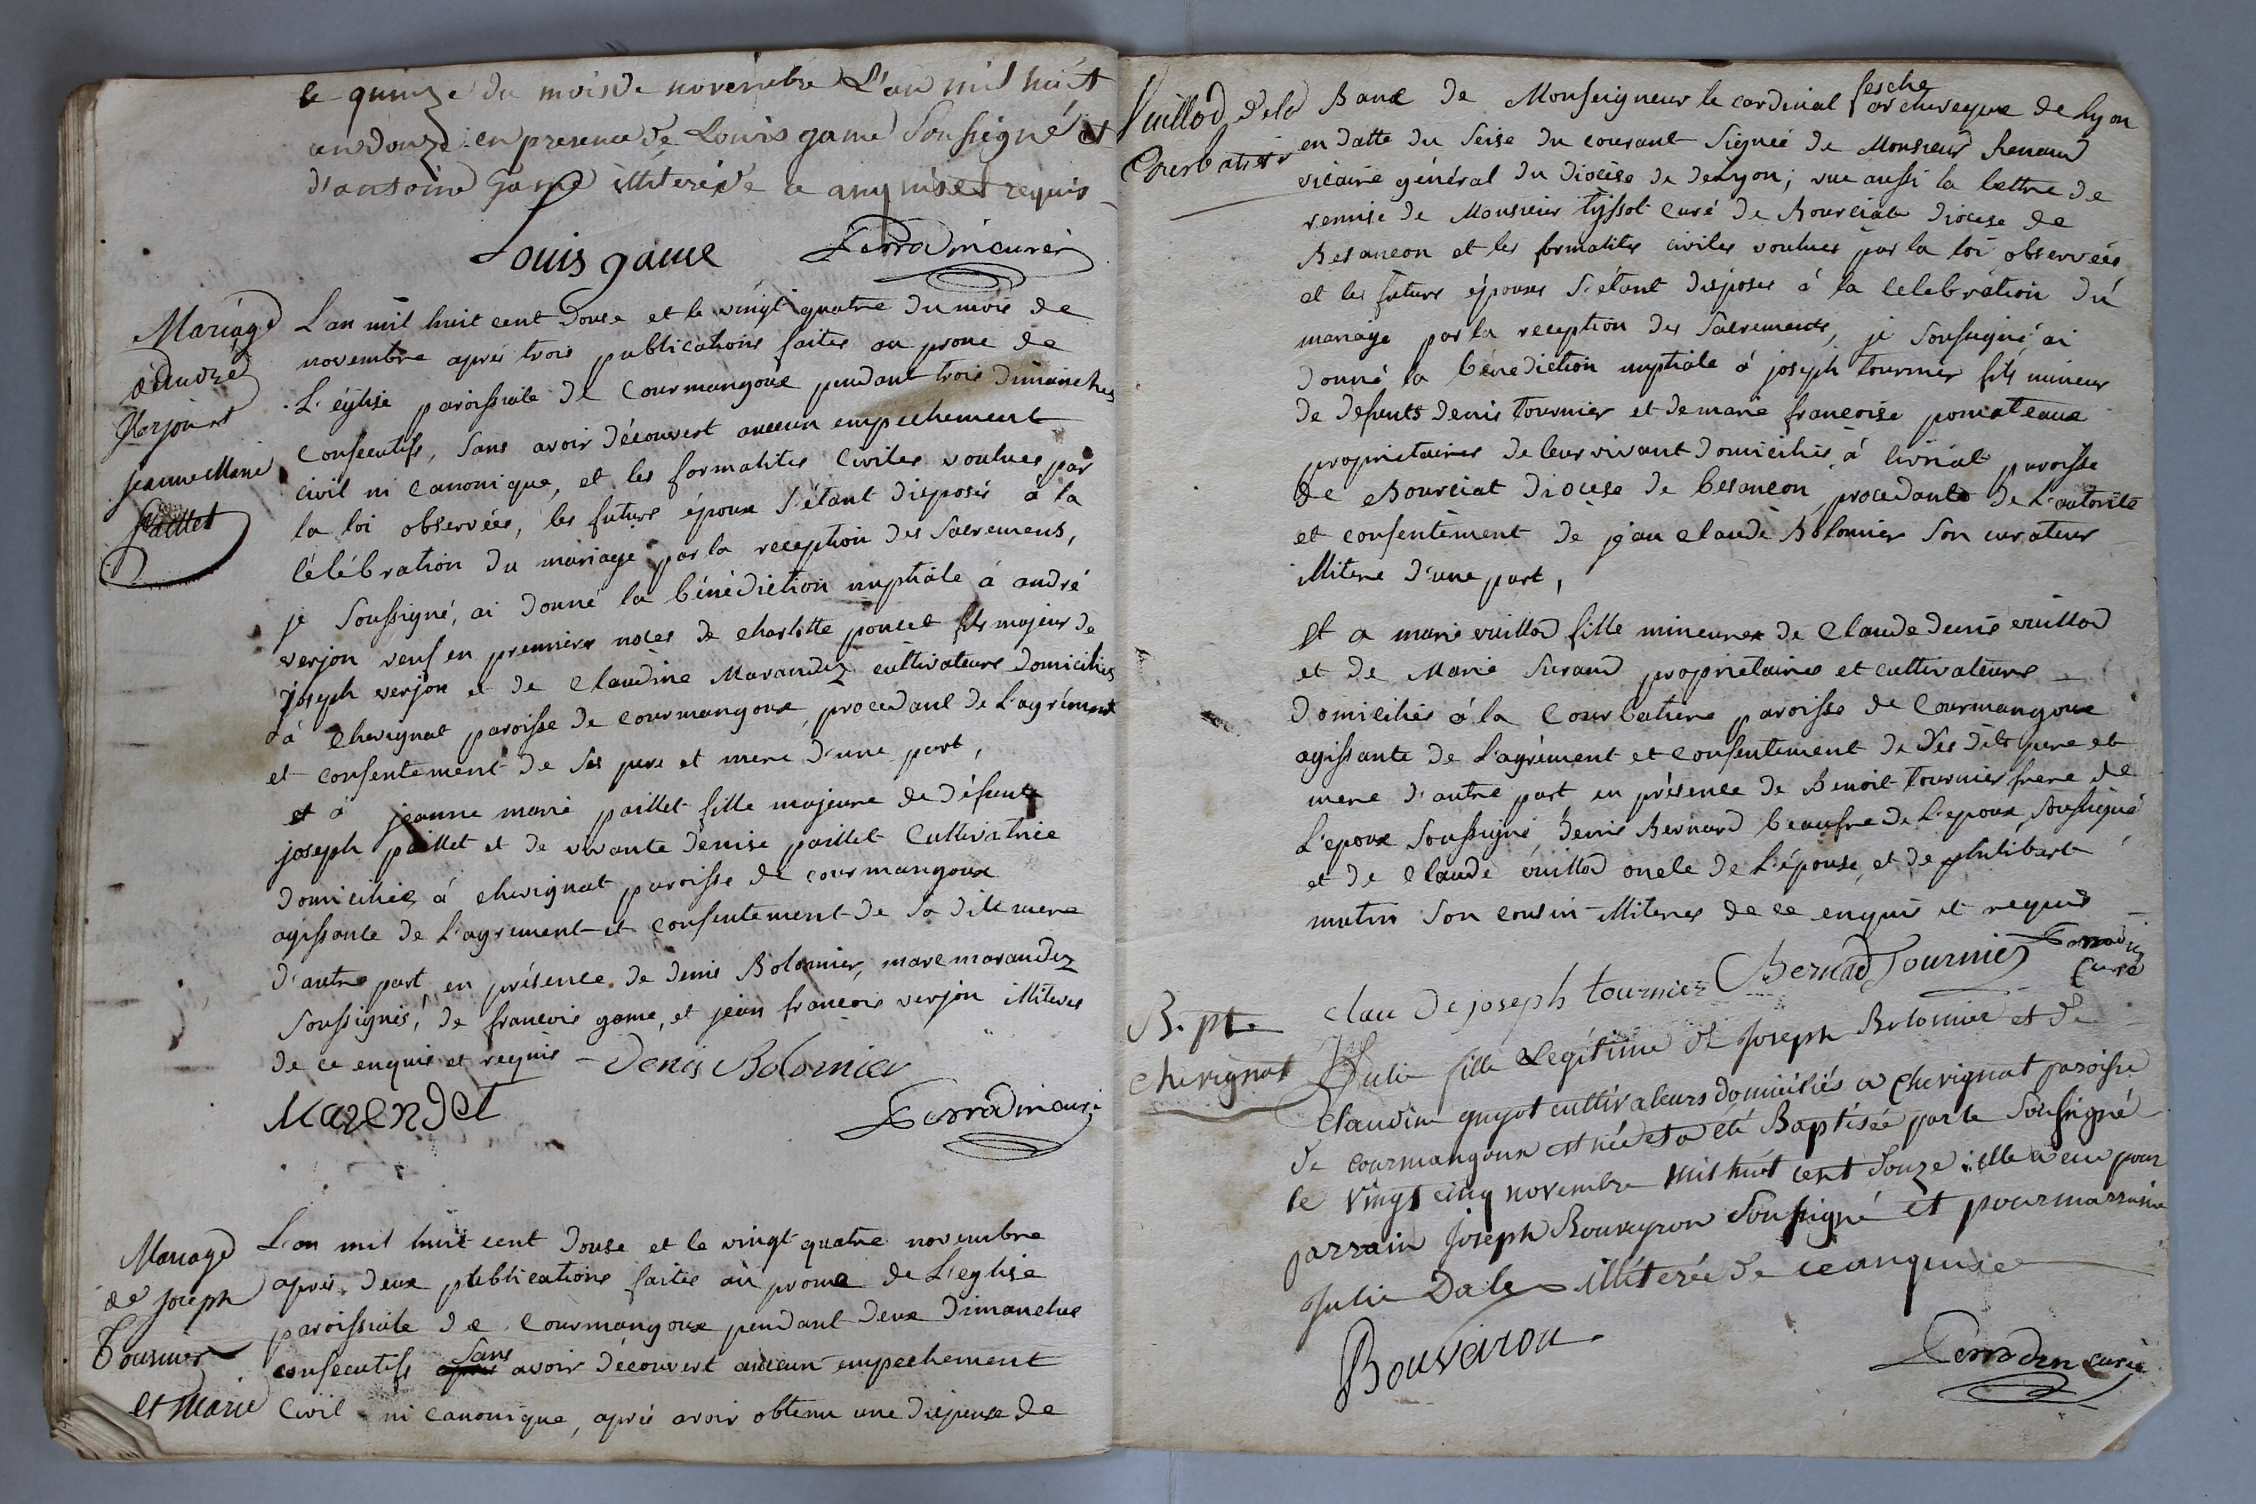 le quinze du mois de novembre L'an mil huit
cen douze en presence de Louis game Soussigné et
d'antoine Game illiteré de ce anquis et requis
Louis game Perrodin curé
Mariage
d'andré
Verjon et
jeanne Marie
Paillet
L'an mil huit cent douse et le vingt quatre du mois de
novembre aprés trois publications faites au prone de
L'église paroissiale de Courmangoux pendant trois dimanches
consecutifs, sans avoir découvert aucun empechement
civil ni canonique, et les formalités civiles voulues par
la loi observées, les futurs époux s'étant disposés à la
célébration du mariage par la reception des sacremens,
je soussigné, ai donné la bénédiction nuptiale á andré
verjon veuf en premiere noces de charlotte poncet fils majeur de
joseph verjon et de Claudine Marandez cultivateurs domiciliés
à chevignat paroisse de courmangoux, procedant de L'agrément
et consentement de ses pere et mere d'une part,
et á jeanne marie paillet fille majeure de défunt
joseph paillet et de vivante denise paillet Cultivatrice
domiciliée á chevignat paroisse de courmangoux
agissante de L'agrement et consentement de sa dite mere
d'autre part en présence de denis Bolomier, marc marandez
soussignés, de francois game, et jean francois verjon illiteres
de ce enquis et requis Denis Bolomier
Marendet Perrodin curé
Mariage
de Joseph
Tournier
et Marie
L'an mil huit cent douse et le vingt quatre novembre
aprés deux publications faites au prone de L'eglise
paroissiale de Courmangoux pendant deux dimanches
consecutifs sans avoir découvert aucun empechement
civil ni canonique, aprés avoir obtenu une dispense de
Vuillod de la
Courbatiere
Banc de Monseigneur le cardinal fesche archeveque de Lyon
en datte du seise du courant signée de Monsieur Renaud
vicaire général du diocise de de Lyon; vue aussi la lettre de
remise de Monsieur tyssot curé de Bourciat diocese de
Besancon et les formalités civiles voulues par la loi observées
et les futurs époux s'étant disposés á la celebration du
mariage par la reception des Sacrements, je soussigné ai
donné la bénediction nuptiale á joseph tournier fils mineur
de defunts denis tournier et de marie francoise poncateaux
proprietaires de leur vivant domiciliés á livriat paroisse
de Bourciat diocese de besancon, procedant de L'autorité
et consentement de jean claude Bolomier son curateur
illitere d'une part,
Et a marie vuillod fille mineure de Claude denis vuillod
et de Marie Suraud proprietaires et cultivateurs
domiciliés á la Courbatiere paroisse de Courmangoux
agissante de L'agrément et consentement de ses dits pere et
mere d'autre part en présence de Benoit tournier frere de
L'epoux soussigné, denis Bernard beaufre de L'epoux, soussigné
et de Claude vuillod oncle de L'épouse, et de philibert
mutin son cousin illiteres de ce enquis et requis
claude joseph tournier Bernad Tournier Perrodin
curé
B. pte
chevignat
Julie fille Legitime de Joseph Bolomier et de
Claudine guyot cultivateurs domiciliés a chevignat paroisse
de courmangoux est née et a été Baptisée par le soussigné
le vingt cinq novembre mil huit cent douze : elle a eu pour
parrain Joseph Bouveyron Soussigné et pour marraine
Julie Dale illiterée de ce anquise
Bouveiron Perrodin curé